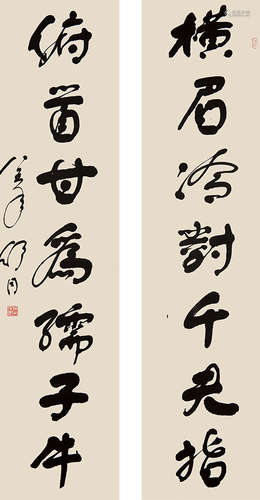 横眉冷對千夫指
俯首甘為孺子牛
舒同